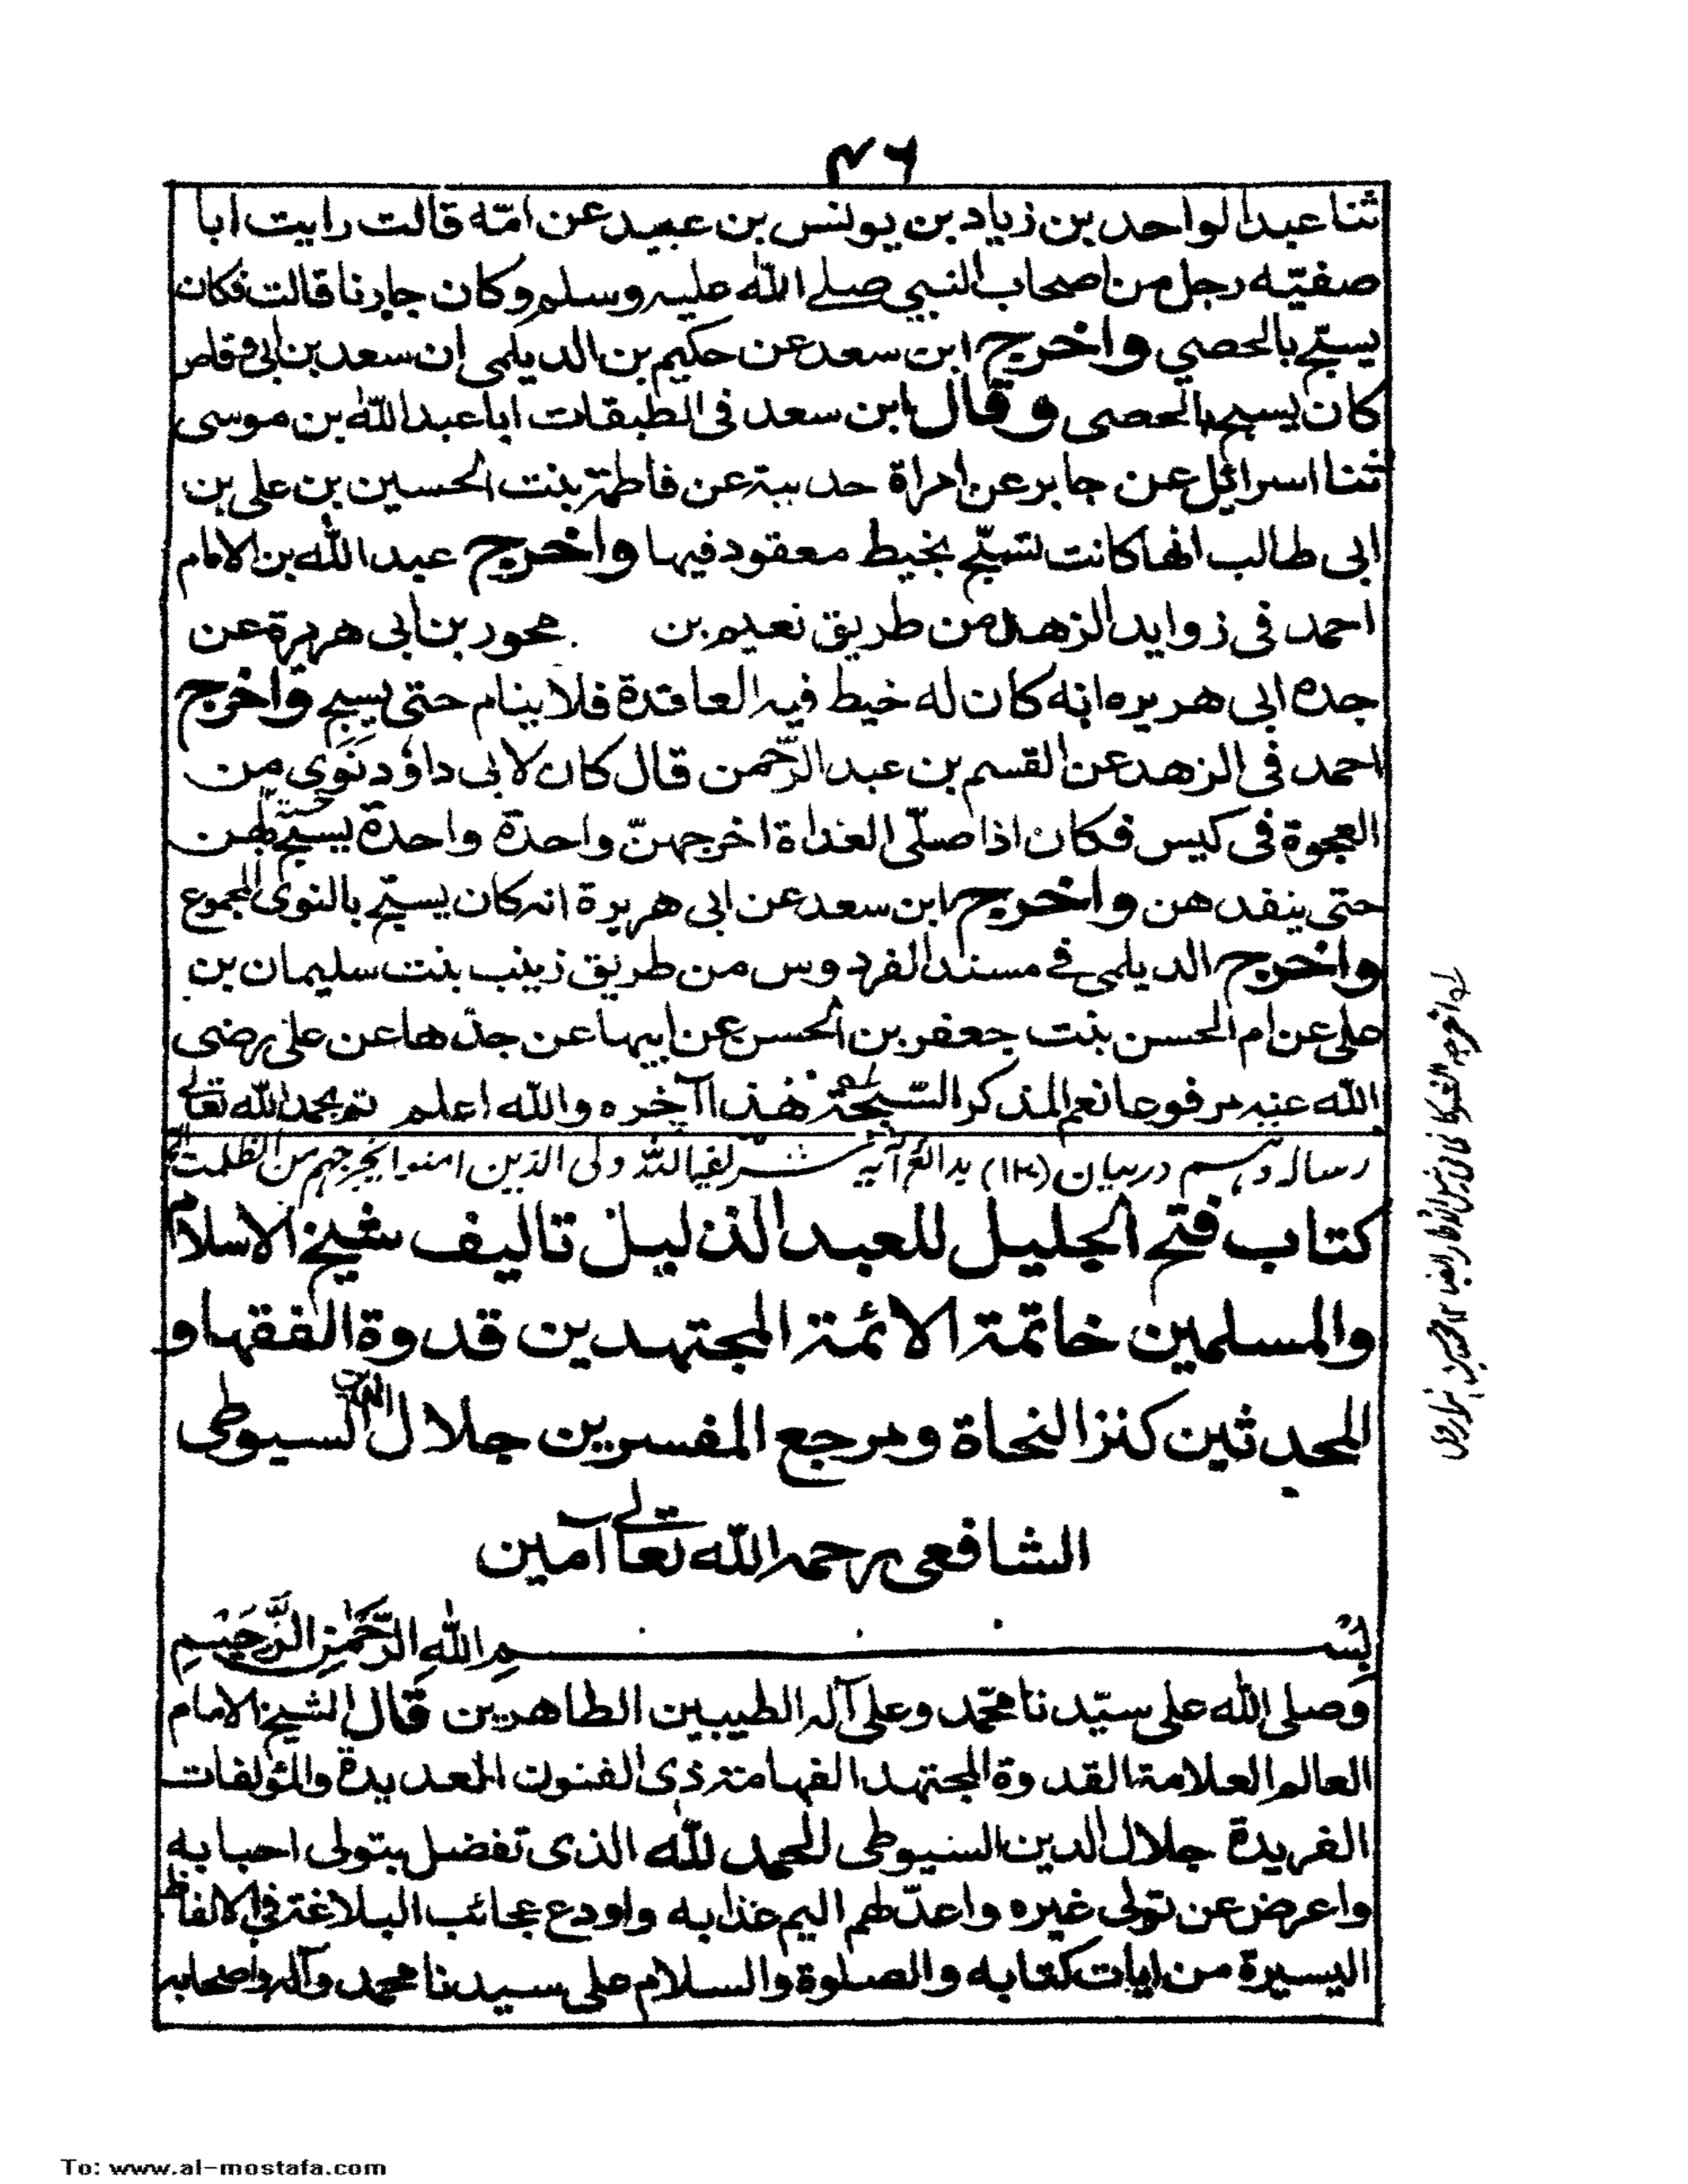 ٤٦
ثنا عبد الواحد بن زياد بن يونس بن عبيد عن امّه قالت رايت ابا
صفيّه رجل من اصحاب النبي صلے الله عليه وسلم وكان جارنا قالت فكان
يسبّح بالحصي واخرج ابن سعد عن حكيم بن الديلمى ان سعد بن ابى وقاص
كان يسبح بالحصى وقال ابن سعد فى الطبقات ابا عبد الله بن موسى
ثنا اسرائيل عن جابر عن امراة حدبية عن فاطمة بنت الحسين بن على بن
ابى طالب انها كانت تسبّح بخيط معقود فيها واخرج عبد الله بن الامام
احمد فى زوايد الزهد من طريق نعيم بن محور بن ابى هريرة عن
جده ابى هريره انه كان له خيط فيه العاقدة فلا ينام حتى يسبح واخرج
احمد فى الزهد عن القسم بن عبد الرّحمن قال كان لابى داوٗد نوَى من
العجوة فى كيس فكان اذا صلّى الغداة اخرجهنّ واحدة واحدة يسبّح بهن
حتى ينفدهن واخرج ابن سعد عن ابى هريرة انه كان يسبّح بالنوى المجموع
واخرج الديلمى فے مسند الفردوس من طريق زينب بنت سليمان بن
على عن ام الحسن بنت جعفر بن الحسن عن ابيها عن جدّها عن على رضى
الله عنه مرفوعا نعم المذكر السّبحة هٰذا آخره والله اعلم تم بحمد الله تعالى
رساله دہم در بيان (١٢٠) بدائع آيہ شريفہ الله ولى الذين امنوا يخرجهم من الظلمت
كتاب فتح الجليل للعبد الذليل تاليف شيخ الاسلام
والمسلمين خاتمة الائمة المجتهدين قدوة الفقها و
المحدثين كنز النحاة ومرجع المفسرين جلال الدين السيوطى
الشافعى رحمه الله تعالے آمين
بِسْمِ اللهِ الرَّحْمٰنِ الرَّحِيْمِ
وصلى الله على سيّدنا محمّد وعلى آله الطيبين الطاهرين قال الشيخ الامام
العالم العلامة القدوة المجتهد الفهامة ذى الفنون العديدة والمؤلفات
الفريدة جلال الدين السيوطى الحمد لله الذى تفضل بتولى احبابه
واعرض عن تولى غيره واعدّ لهم اليم عذابه واودع عجائب البلاغة فى الالفاظ
اليسيرة من ايات كتابه والصلوة والسلام على سيدنا محمد وآله واصحابه
To: www.al-mostafa.com